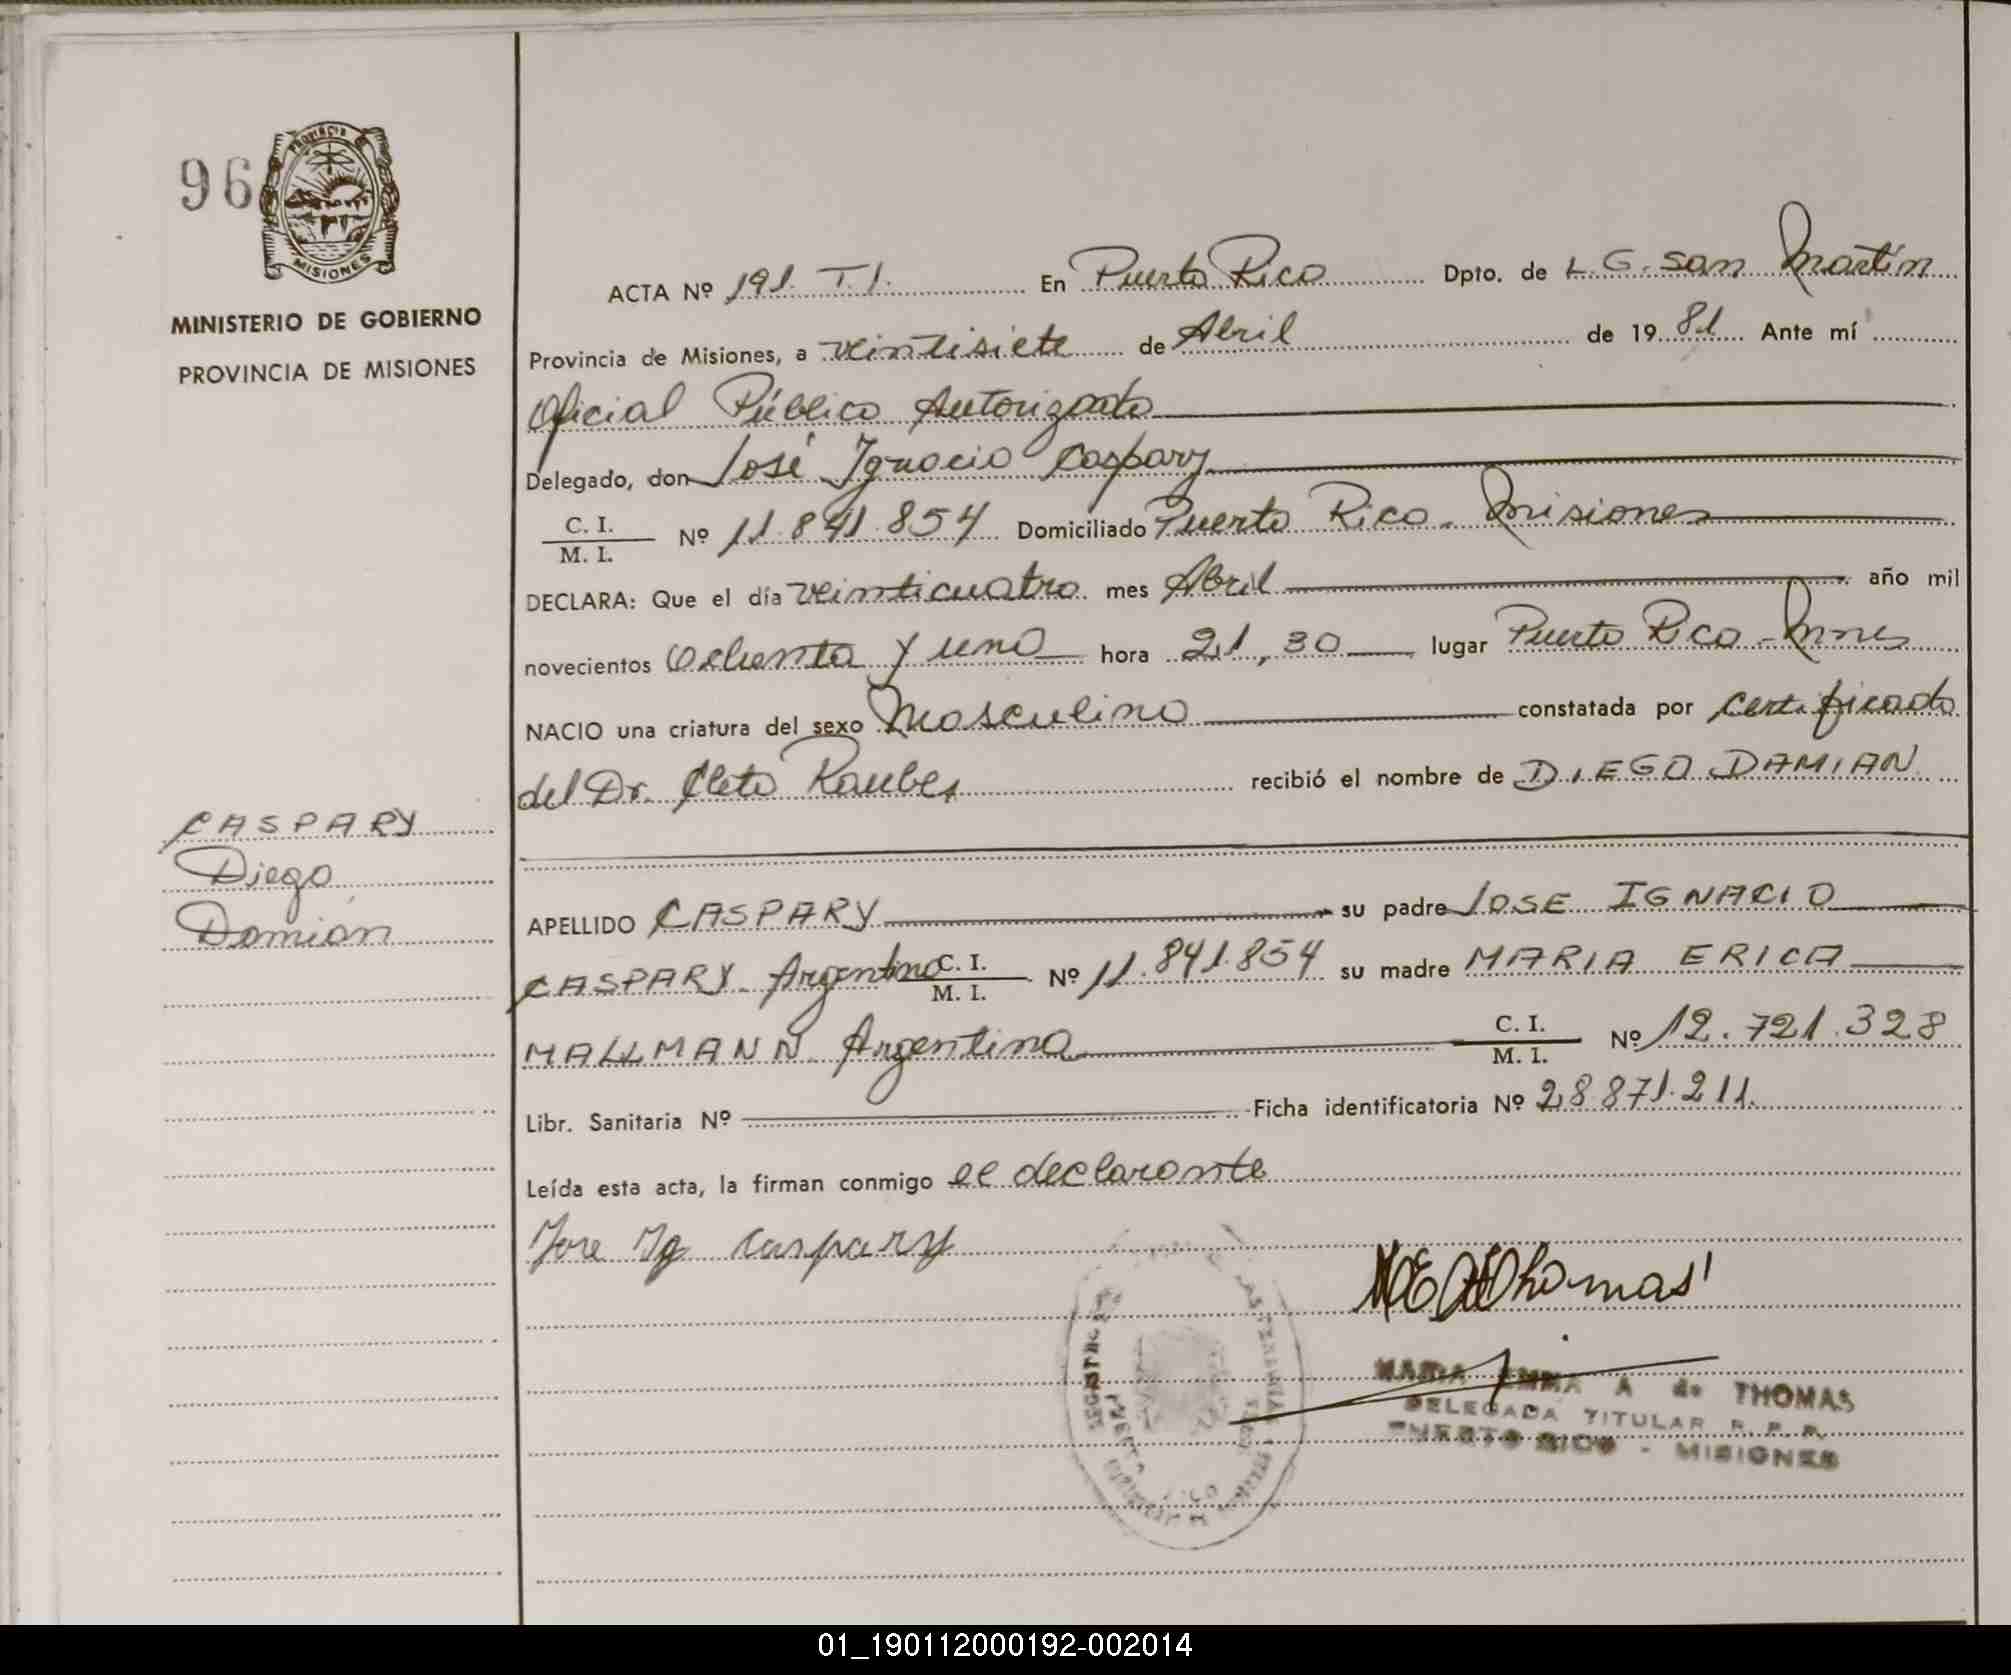 96
PROVINCIA
MISIONES
MINISTERIO DE GOBIERNO
PROVINCIA DE MISIONES
CASPARY
Diego
Damián
ACTA Nº 191. T.I. En Puerto Rico Dpto. de L.G. San Martín
Provincia de Misiones, a veintisiete de Abril de 1981 Ante mí
Oficial Público Autorizado
Delegado, don José Ignacio Caspary
C. I.
M. I. Nº 11.841.854 Domiciliado Puerto Rico - Misiones
DECLARA: Que el día veinticuatro mes Abril año mil
novecientos Ochenta y uno hora 21,30 lugar Puerto Rico - Mnes
NACIO una criatura del sexo Masculino constatada por certificado
del Dr. Cleto Rauber recibió el nombre de DIEGO DAMIAN
APELLIDO CASPARY su padre JOSE IGNACIO
CASPARY Argentino C. I. M. I. Nº 11.841.854 su madre MARIA ERICA
MALLMANN Argentina C. I. M. I. Nº 12.721.328
Libr. Sanitaria Nº Ficha identificatoria Nº 28.871.211.
Leída esta acta, la firman conmigo el declarante
Jose Ig Caspary
Thomas
MARIA EMMA A de THOMAS
DELEGADA TITULAR R. P. P.
PUERTO RICO - MISIONES
01_190112000192-002014